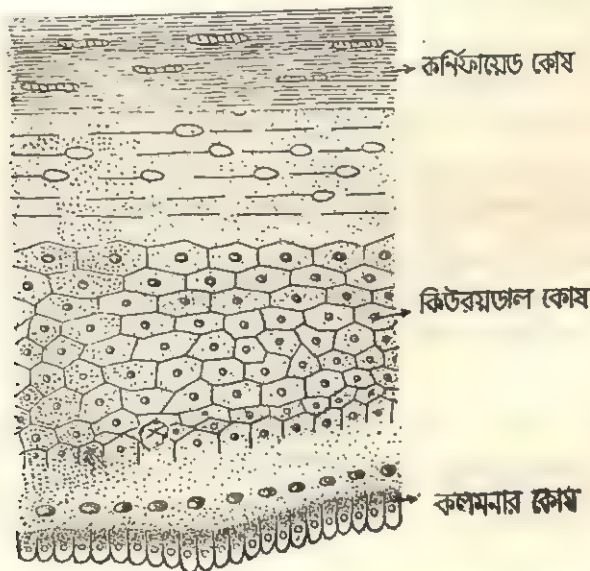 কর্নিফায়েড কোষ
কিউরয়ডাল কোষ
কলমনার কোষ